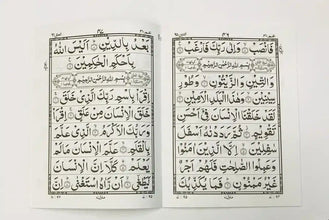 فَانْصَبْ وَاِلٰى رَبِّكَ فَارْغَبْ
بِسْمِ اللهِ الرَّحْمٰنِ الرَّحِيْمِ
وَالتِّيْنِ وَالزَّيْتُوْنِ وَطُوْرِ
سِيْنِيْنَ وَهٰذَا الْبَلَدِ الْاَمِيْنِ
لَقَدْ خَلَقْنَا الْاِنْسَانَ فِيْ اَحْسَنِ
تَقْوِيْمٍ ثُمَّ رَدَدْنٰهُ اَسْفَلَ
سٰفِلِيْنَ اِلَّا الَّذِيْنَ اٰمَنُوْا
وَعَمِلُوا الصّٰلِحٰتِ فَلَهُمْ اَجْرٌ
غَيْرُ مَمْنُوْنٍ فَمَا يُكَذِّبُكَ
بَعْدُ بِالدِّيْنِ اَلَيْسَ اللهُ
بِاَحْكَمِ الْحٰكِمِيْنَ
بِسْمِ اللهِ الرَّحْمٰنِ الرَّحِيْمِ
اِقْرَاْ بِاسْمِ رَبِّكَ الَّذِيْ خَلَقَ خَلَقَ
الْاِنْسَانَ مِنْ عَلَقٍ اِقْرَاْ
وَرَبُّكَ الْاَكْرَمُ الَّذِيْ عَلَّمَ
بِالْقَلَمِ عَلَّمَ الْاِنْسَانَ مَا لَمْ
يَعْلَمْ كَلَّا اِنَّ الْاِنْسَانَ
لَيَطْغٰى اَنْ رَّاٰهُ اسْتَغْنٰى اِنَّ